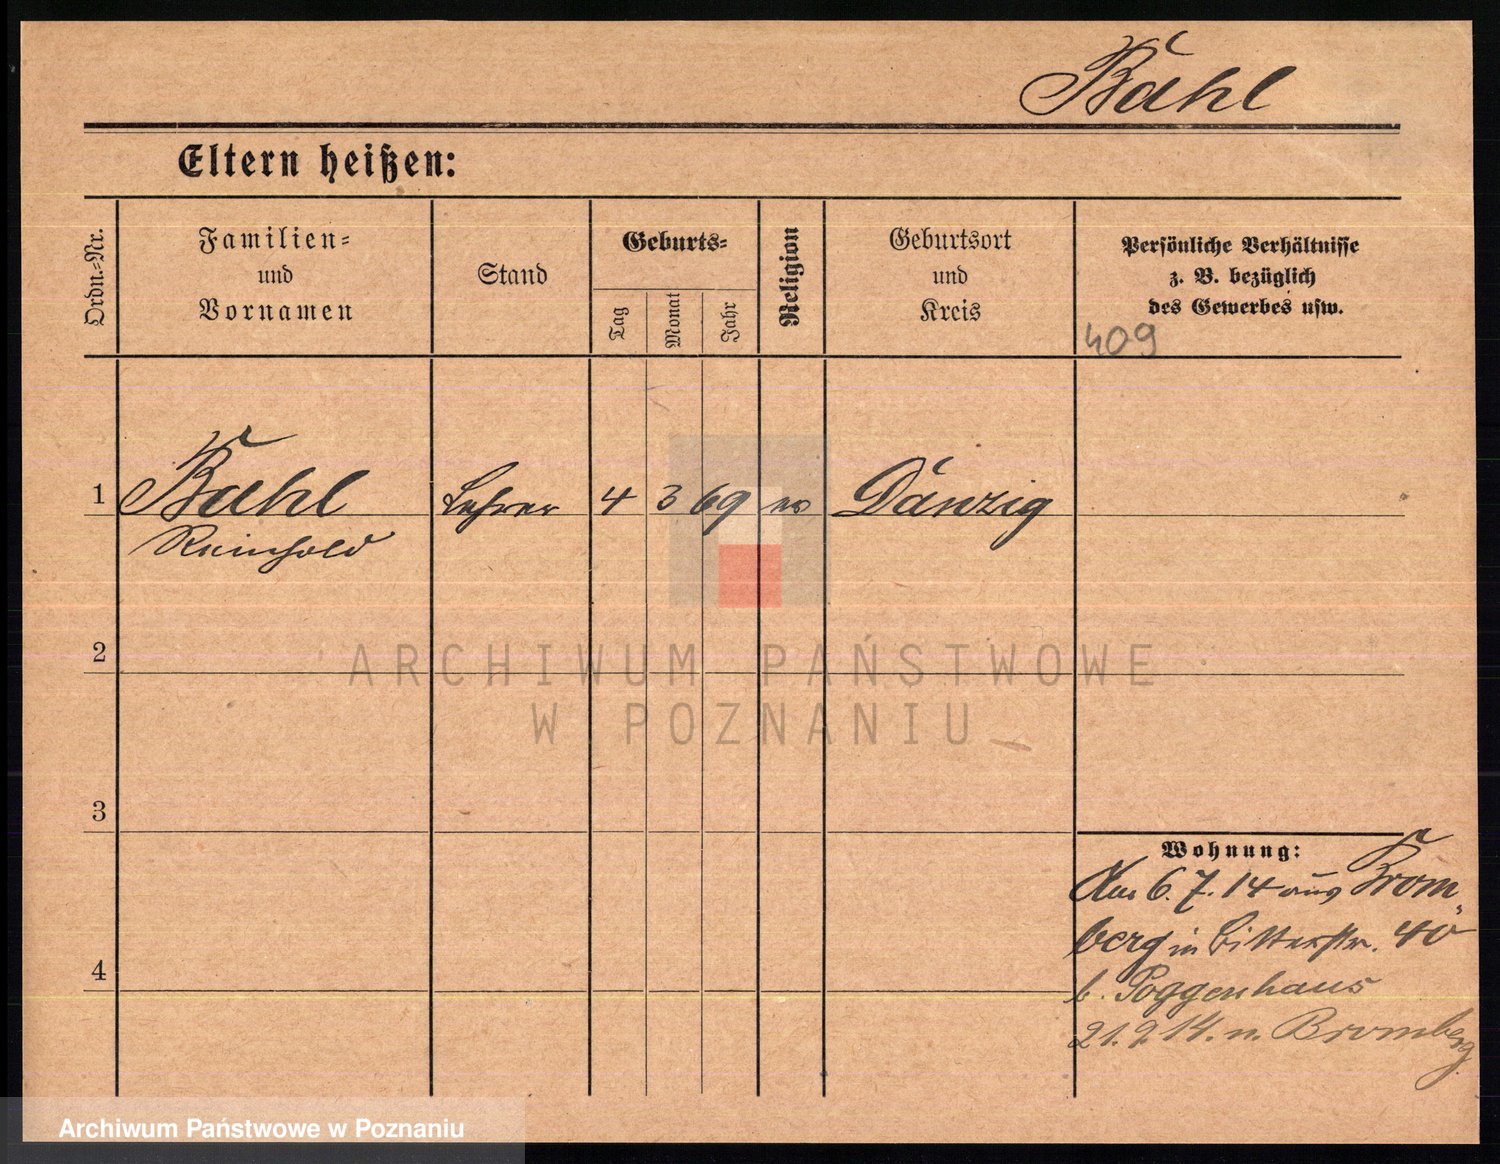 Bahl
Eltern heißen:
Ordn.-Nr.
Familien-
und
Vornamen
Stand
Geburts-
Tag
Monat
Jahr
Religion
Geburtsort
und
Kreis
Persönliche Verhältnisse
z. B. bezüglich
des Gewerbes usw.
409
1 Bahl Lehrer 4 3 69 ev Danzig
Reinhold
2
3
4
Wohnung:
Am 6.7.14 aus Brom-
berg in Ritterstr. 40
b. Poggenhaus
21.9.14. n. Bromberg
ARCHIWUM PAŃSTWOWE
W POZNANIU
Archiwum Państwowe w Poznaniu